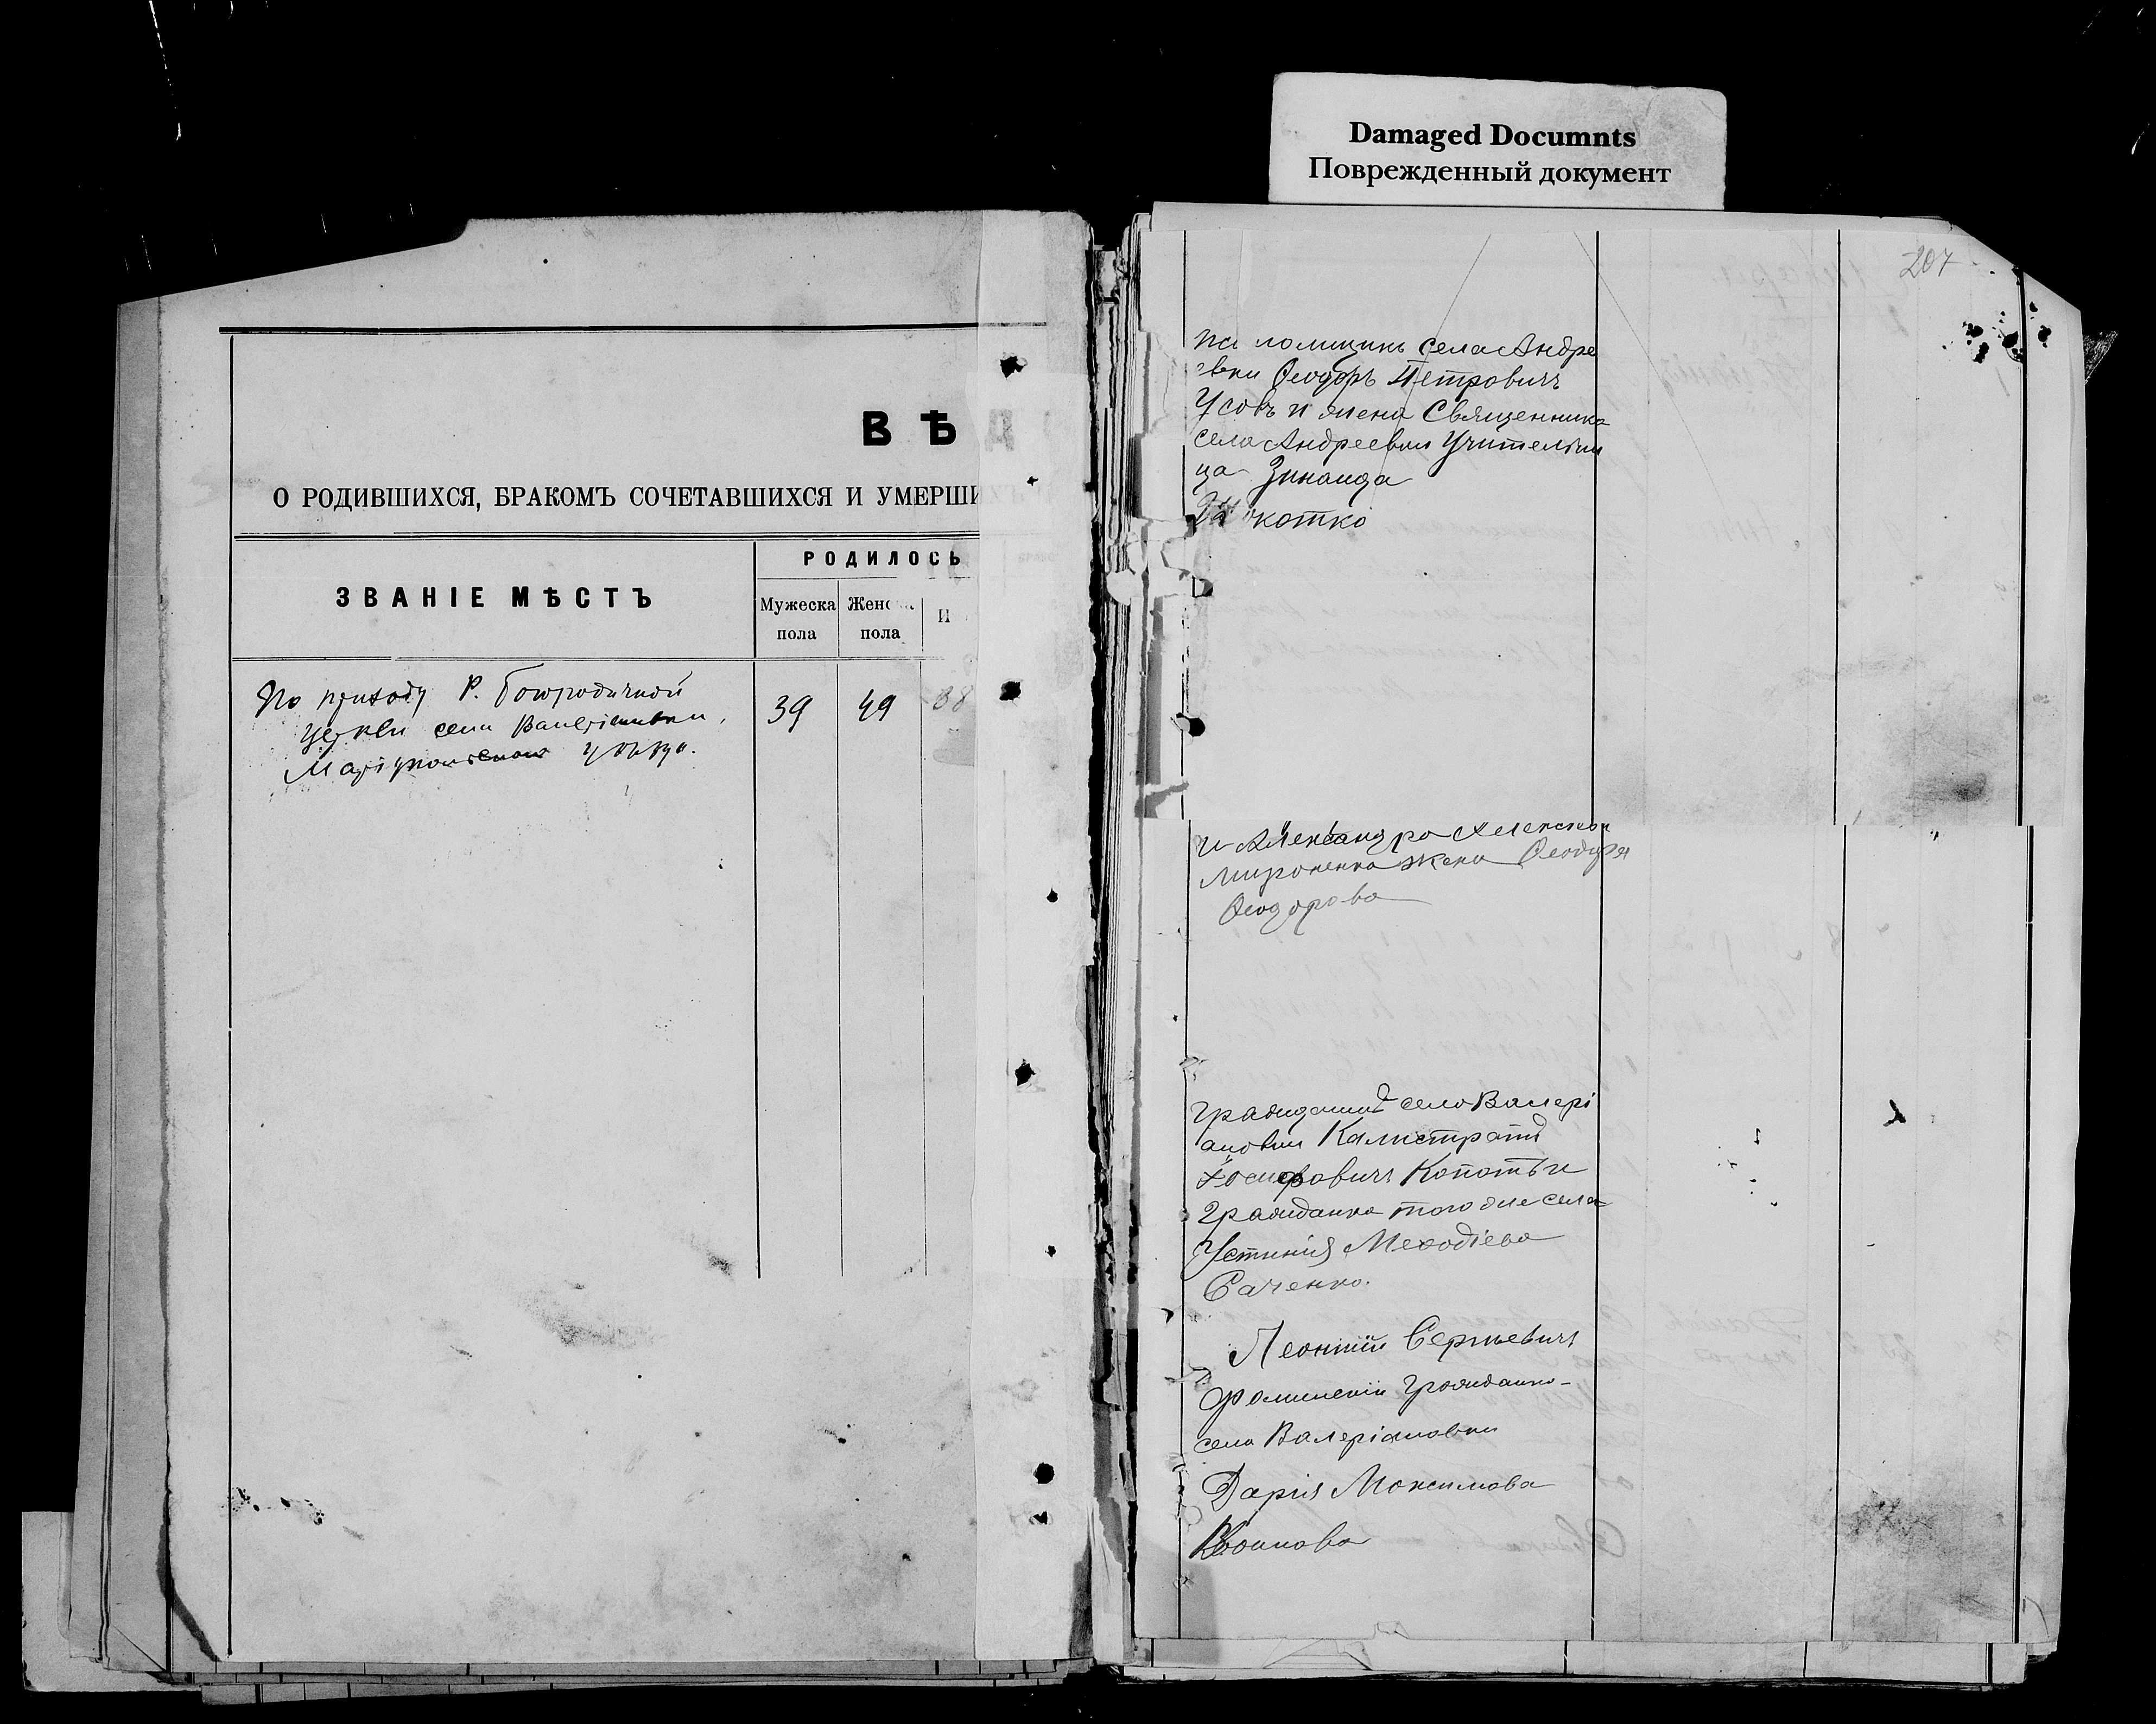 Damaged Documnts
Поврежденный документ
ВѢ
О РОДИВШИХСЯ, БРАКОМЪ СОЧЕТАВШИХСЯ И УМЕРШИ
ЗВАНІЕ МѢСТЪ
РОДИЛОСЬ
Мужеска пола
Женс пола
И
По приходу Р. Богородичной
церкви села Валеріановки,
Маріупольскаго уѣзда.
39
49
38
207
села Андре
евки Ѳеодоръ Петровичъ
Усовъ и жена Священника
села Андреевки Учительни
ца Зинаида
и Александра Алексѣева
Мироненка жена Ѳеодора
Ѳеодорова
Гражданинъ села Валері
ановки Калистратъ
Іосифовичъ Копоть и
Гражданка того же села
Устинія Меѳодіева
Саченко.
Леонтій Сергѣевичъ
гражданка
села Валеріановки
Дарія Максимова